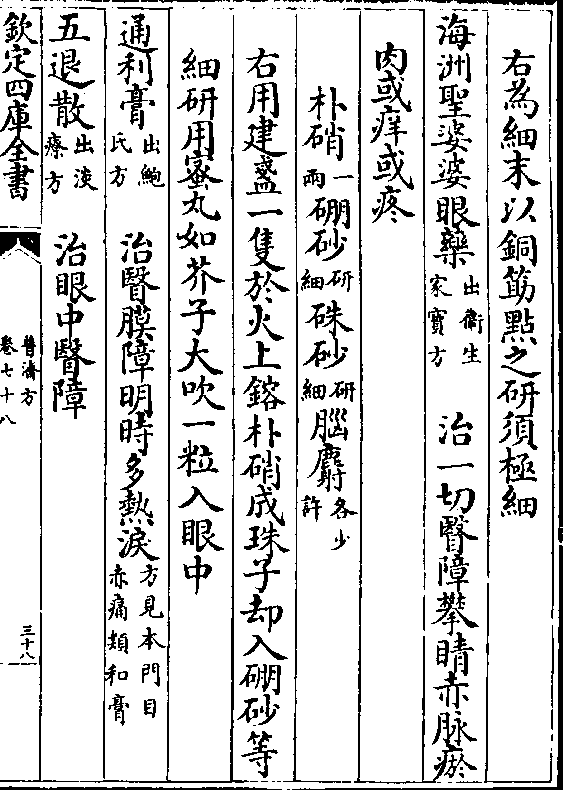 右為細末以銅筯點之研須極細
海洲聖婆婆眼藥出衞生家寳方 治一切瞖障攀睛赤脉瘀
肉或痒或疼
朴硝一兩硼砂研細硃砂研細腦麝各少許
右用建盞一隻於火上鎔朴硝成珠子却入硼砂等
細研用蜜丸如芥子大吹一粒入眼中
通利膏出鮑氏方 治瞖膜障明時多熱淚方見本門目赤痛類和膏
五退散出淡療方 治眼中瞖障
欽定四庫全書
普濟方
卷七十八
三十八